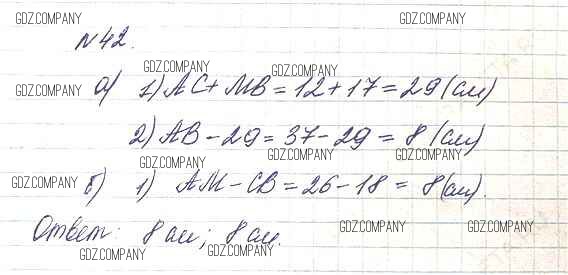 GDZ.COMPANY GDZ.COMPANY
№42.
GDZ.COMPANY GDZ.COMPANY
GDZ.COMPANY а) 1) AC + MB = 12 + 17 = 29 (см)
2) AB - 29 = 37 - 29 = 8 (см)
GDZ.COMPANY GDZ.COMPANY GDZ.COMPANY
GDZ.COMPANY б) 1) AM - CB = 26 - 18 = 8 (см).
Ответ: 8 см; 8 см.
GDZ.COMPANY GDZ.COMPANY
GDZ.COMPANY GDZ.COMPANY